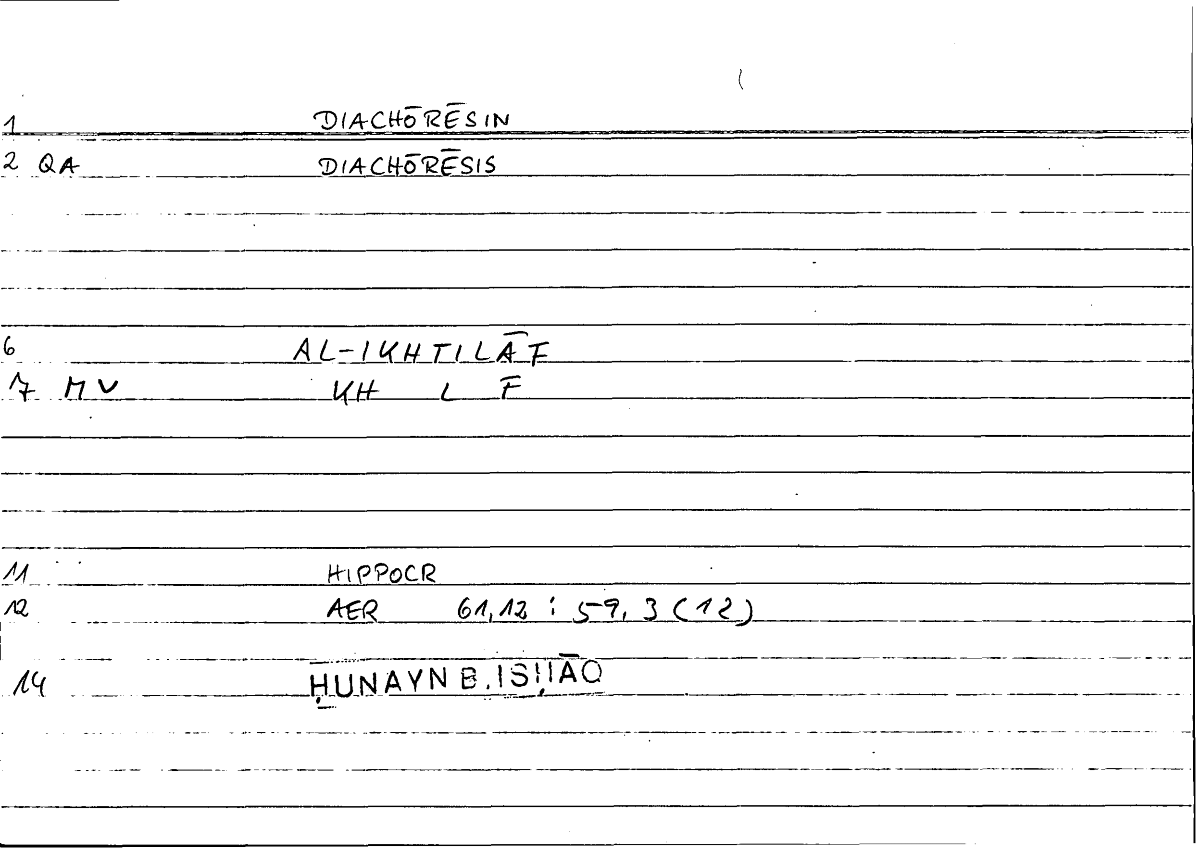 1 DIACHŌRĒSIN
2 QA DIACHŌRĒSIS
6 AL-IKHTILĀF
7 MV KH L F
11 HIPPOCR
12 AER 61,12 : 59,3 (12)
14 ḤUNAYN B. ISḤĀQ